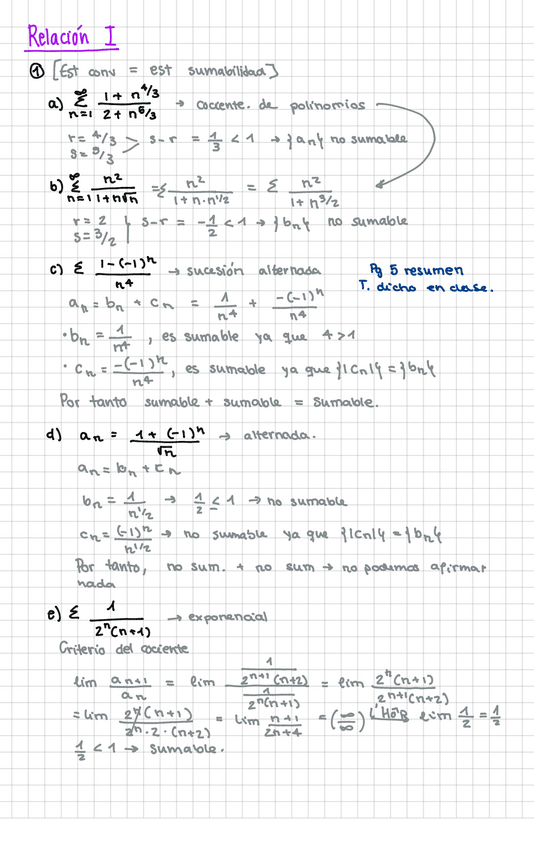 Relación I
① [Est conv = est sumabilidad]
a) Σ_{n=1}^{∞} (1 + n^{4/3})/(2 + n^{5/3}) → cociente de polinomios
r = 4/3
s = 5/3 > s-r = 1/3 < 1 → {an} no sumable
b) Σ_{n=1}^{∞} n²/(1+n√n) = Σ n²/(1+n·n^{1/2}) = Σ n²/(1+n^{3/2})
r = 2
s = 3/2 | s-r = -1/2 < 1 → {bn} no sumable
c) Σ (1-(-1)^n)/n⁴ → sucesión alternada
Pg 5 resumen
T. dicho en clase.
an = bn + cn = 1/n⁴ + -(-1)^n/n⁴
· bn = 1/n⁴, es sumable ya que 4>1
· cn = -(-1)^n/n⁴, es sumable ya que {|cn|} = {bn}
Por tanto sumable + sumable = sumable.
d) an = (1 + (-1)^n)/√n → alternada.
an = bn + cn
bn = 1/n^{1/2} → 1/2 ≤ 1 → no sumable
cn = (-1)^n/n^{1/2} → no sumable ya que {|cn|} = {bn}
Por tanto, no sum. + no sum → no podemos afirmar
nada
e) Σ 1/(2^n(n+1)) → exponencial
Criterio del cociente
lim a_{n+1}/a_n = lim (1/(2^{n+1}(n+2)))/(1/(2^n(n+1))) = lim 2^n(n+1)/(2^{n+1}(n+2))
= lim 2^n(n+1)/(2^n·2·(n+2)) = lim (n+1)/(2n+4) = (∞/∞) L'HÔB lim 1/2 = 1/2
1/2 < 1 → sumable.